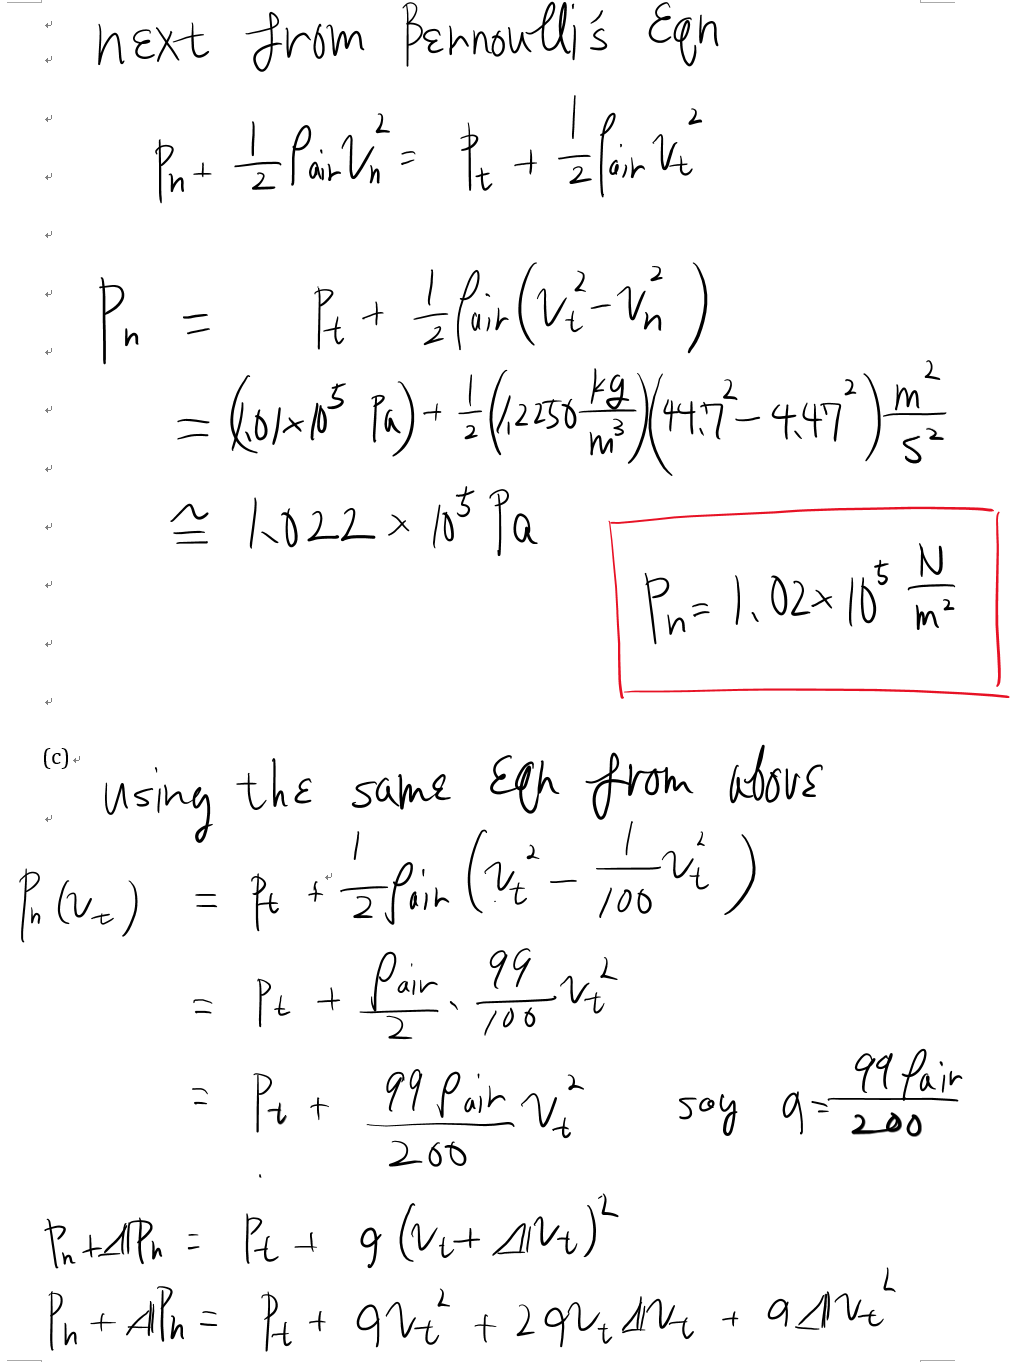 next from Bernoulli's Eqn
Pn + 1/2 ρair Vn² = Pt + 1/2 ρair Vt²
Pn = Pt + 1/2 ρair (Vt² - Vn²)
= (1.01×10⁵ Pa) + 1/2 (1.2250 kg/m³)(44.7² - 4.47²) m²/s²
≅ 1.022 × 10⁵ Pa
Pn = 1.02 × 10⁵ N/m²
(c)
using the same Eqn from above
Pn (Vt) = Pt + 1/2 ρair (Vt² - 1/100 Vt²)
= Pt + ρair/2 · 99/100 Vt²
= Pt + 99 ρair/200 Vt² say q = 99 ρair/200
Pn + ΔPn = Pt + q (Vt + ΔVt)²
Pn + ΔPn = Pt + qVt² + 2qVtΔVt + qΔVt²